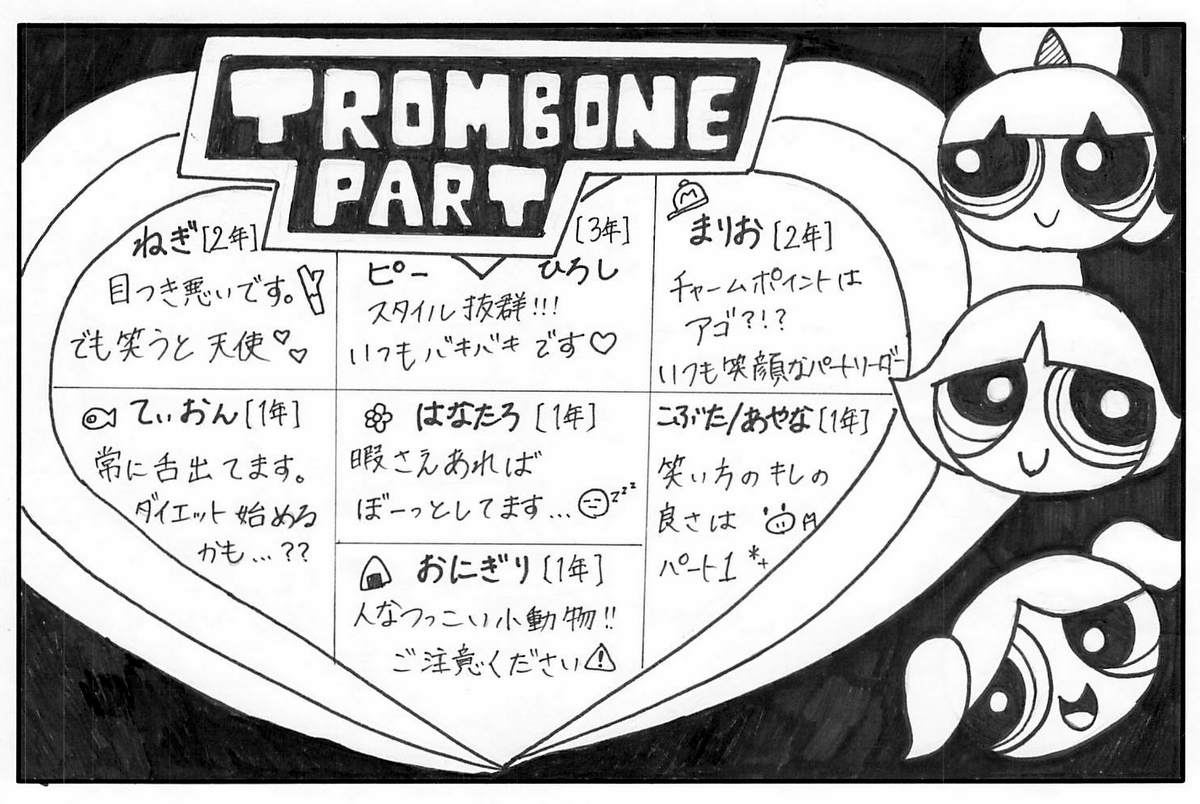 TROMBONE
PART
ねぎ[2年]
目つき悪いです。
でも笑うと天使♡♡
[3年]
ピー ひろし
スタイル抜群!!!
いつもバキバキです♡
M
まりお[2年]
チャームポイントは
アゴ?!?
いつも笑顔なパートリーダー
てぃおん[1年]
常に舌出てます。
ダイエット始める
かも…??
はなたろ[1年]
暇さえあれば
ぼーっとしてます…zzz
おにぎり[1年]
人なつっこい小動物!!
ご注意ください⚠
こぶた/あやな[1年]
笑い方のキレの
良さは
パート1